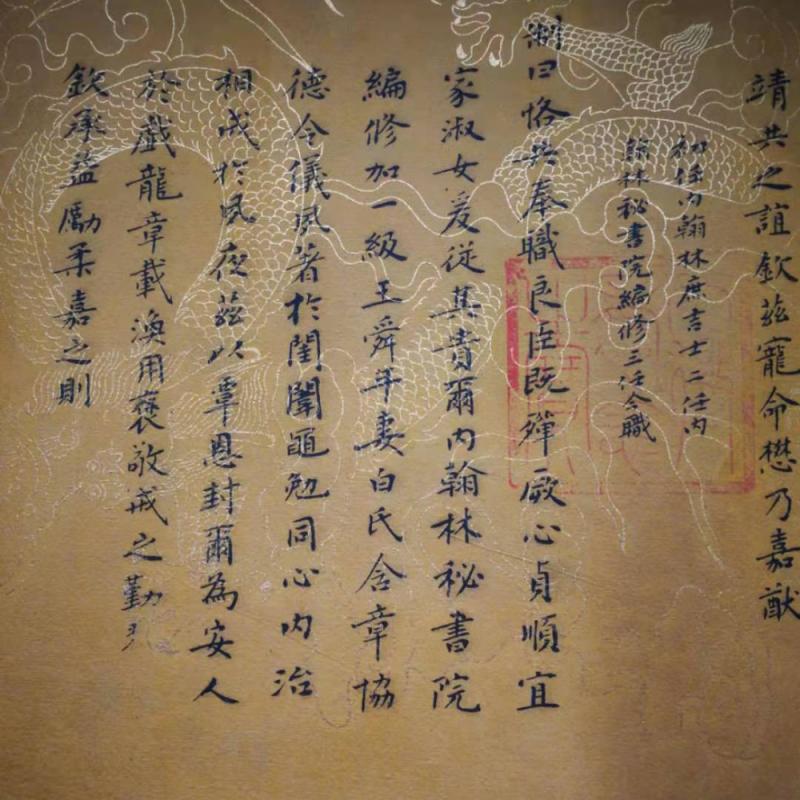 靖共之誼欽茲寵命懋乃嘉猷
初任內翰林庶吉士二任內
翰林秘書院編修三任今職
制曰恪共奉職良臣既殫厥心貞順宜
家淑女爰從其貴爾內翰林秘書院
編修加一級王舜年妻白氏含章協
德令儀夙著於閨闈黽勉同心內治
相成於夙夜茲以覃恩封爾為安人
於戲龍章載渙用褒敬戒之勤
欽承益勵柔嘉之則